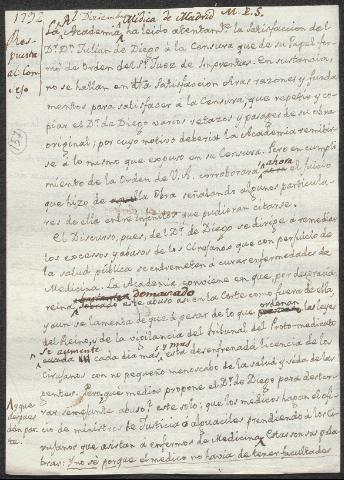 1792 A Diciembre M. P. S.
Respuesta al Consejo
La Academia Médica de Madrid ha leído atentamte. la Satisfaccion del
Dr. Dn. Julian de Diego à la Censura que de su Papel for
mó de Orden del Sr. Juez de Imprentas. En sustancia,
no se hallan en dha Satisfaccion otras razones y funda
mentos para satisfacer à la Censura, que repetir y co
piar el Dr. de Diego varios retazos y pasages de su obra
original; por cuyo motivo deberia la Academia remitir
se à lo mismo que expuso en su Censura. Pero en cumpli
miento de la Orden de V. A. corroborará ahora el juicio
que hizo de la Obra señalando algunos particula
res de ella entre infinitos que pudieran citarse.
El Discurso, pues, del Dr. de Diego se dirige à remediar
los excessos y abusos de los Cirujanos que con perjuicio de
la salud publica se entremeten à curar enfermedades de
Medicina. La Academia conviene en que, por desgracia
reina demasiado este abuso asi en la Corte como fuera de ella,
y aun se lamenta de que à pesar de lo que ordenan las leyes
del Reino, y de la vigilancia del Tribunal del Proto-medicato
se aumente cada dia mas y mas esta desenfrenada licencia de los
Cirujanos con no pequeño menoscabo de la salud y vida de los
pacientes. Pero que medios propone el Dr. de Diego para dester
rar semejante abuso? este solo; que los medicos hagan el ofi
cio de ministros de Justicia ò alguaciles prendiendo à los Ci
rujanos que asistan à enfermos de Medicina. Estas son sus pala
bras: Y no sé porque el medico no havia de tener facultades